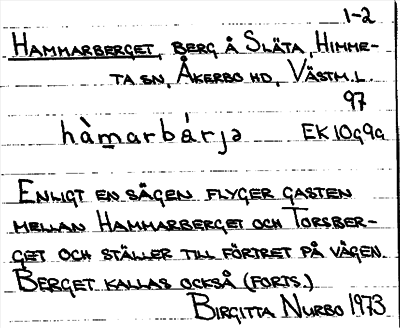 1-2
HAMMARBERGET, BERG Å SLÄTA, HIMME-
TA SN, ÅKERBO HD, VÄSTM. L.
97
hàmarbárjə EK 10g9a
ENLIGT EN SÄGEN FLYGER GASTEN
MELLAN HAMMARBERGET OCH TORSBER-
GET OCH STÄLLER TILL FÖRTRET PÅ VÄGEN.
BERGET KALLAS OCKSÅ (FORTS.)
BIRGITTA NURBO 1973